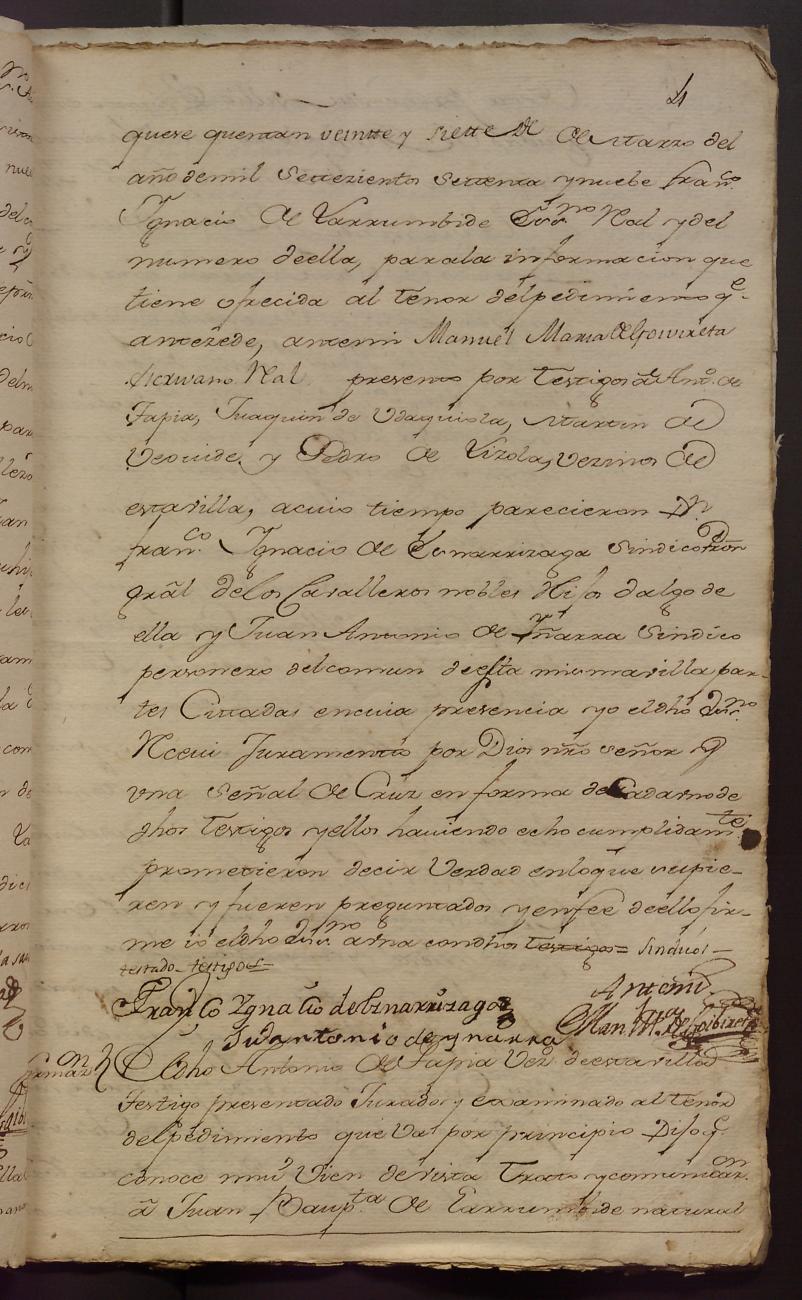 4
que se quentan veintte y siette de de Marzo del
año de mil settezientos settenta y nuebe Fran.co
Ygnacio de Larrumbide Ess.no Real y del
numero de ella, para la informacion que
tiene ofrecida al tenor del pedimiento q.e
antezede, antemi Manuel Maria de Goivireta
Escrivano Real presento por testigos a Ant.o de
Tapia, Juaquin de Vdaquiola, Martin de
y Pedro de Lizola, vezinos de
esta villa, a cuio tiempo parecieron D.n
Fran.co Ygnacio de Eznarrizaga Sindico Pror
grâl de los Cavalleros nobles Hijos dalgo de
ella y Juan Antonio de Yñarra Sindico
personero del comun de esta misma villa par-
tes Cittadas en cuia presencia yo el dho Ess.no
Receui Juramento por Dios nrõ señor y
vna señal de Cruz en forma de cada vno de
dhos testigos y ellos haviendo echo cumplidam.te
prometieron decir Verdad en lo que supie-
ren y fueren preguntados y en fee de ello fir-
me io el dho Ess.no a vna con dhos testigos= Sindicos-
testado-testigos-
Fran.co Ygnacio de Eznarrizaga
Antemi
Man.l M.a de Goibireta
Ju Antonio de Ynarra
El dho Antonio de Tapia Vez.o de esta villa
testigo presentado Jurado y examinado al tenor
del pedimiento que Va por principio Dijo q.e
conoce mui Vien de vista trato y comunicaz.on
a Juan Baup.ta de Larrumbide natural